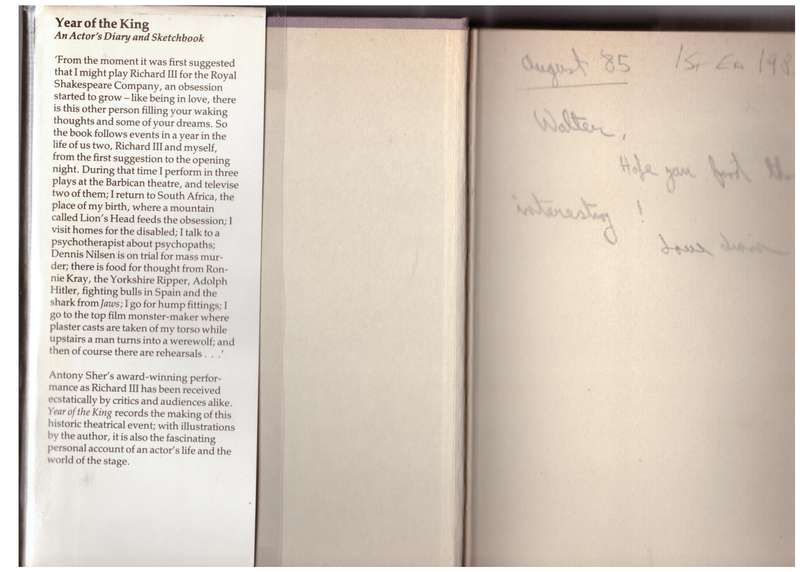 Year of the King
An Actor's Diary and Sketchbook
'From the moment it was first suggested
that I might play Richard III for the Royal
Shakespeare Company, an obsession
started to grow – like being in love, there
is this other person filling your waking
thoughts and some of your dreams. So
the book follows events in a year in the
life of us two, Richard III and myself,
from the first suggestion to the opening
night. During that time I perform in three
plays at the Barbican theatre, and televise
two of them; I return to South Africa, the
place of my birth, where a mountain
called Lion's Head feeds the obsession; I
visit homes for the disabled; I talk to a
psychotherapist about psychopaths;
Dennis Nilsen is on trial for mass mur-
der; there is food for thought from Ron-
nie Kray, the Yorkshire Ripper, Adolph
Hitler, fighting bulls in Spain and the
shark from Jaws; I go for hump fittings; I
go to the top film monster-maker where
plaster casts are taken of my torso while
upstairs a man turns into a werewolf; and
then of course there are rehearsals . . .'
Antony Sher's award-winning perfor-
mance as Richard III has been received
ecstatically by critics and audiences alike.
Year of the King records the making of this
historic theatrical event; with illustrations
by the author, it is also the fascinating
personal account of an actor's life and the
world of the stage.
August '85 1st Edn 198
Walter,
Hope you find
interesting !
Love